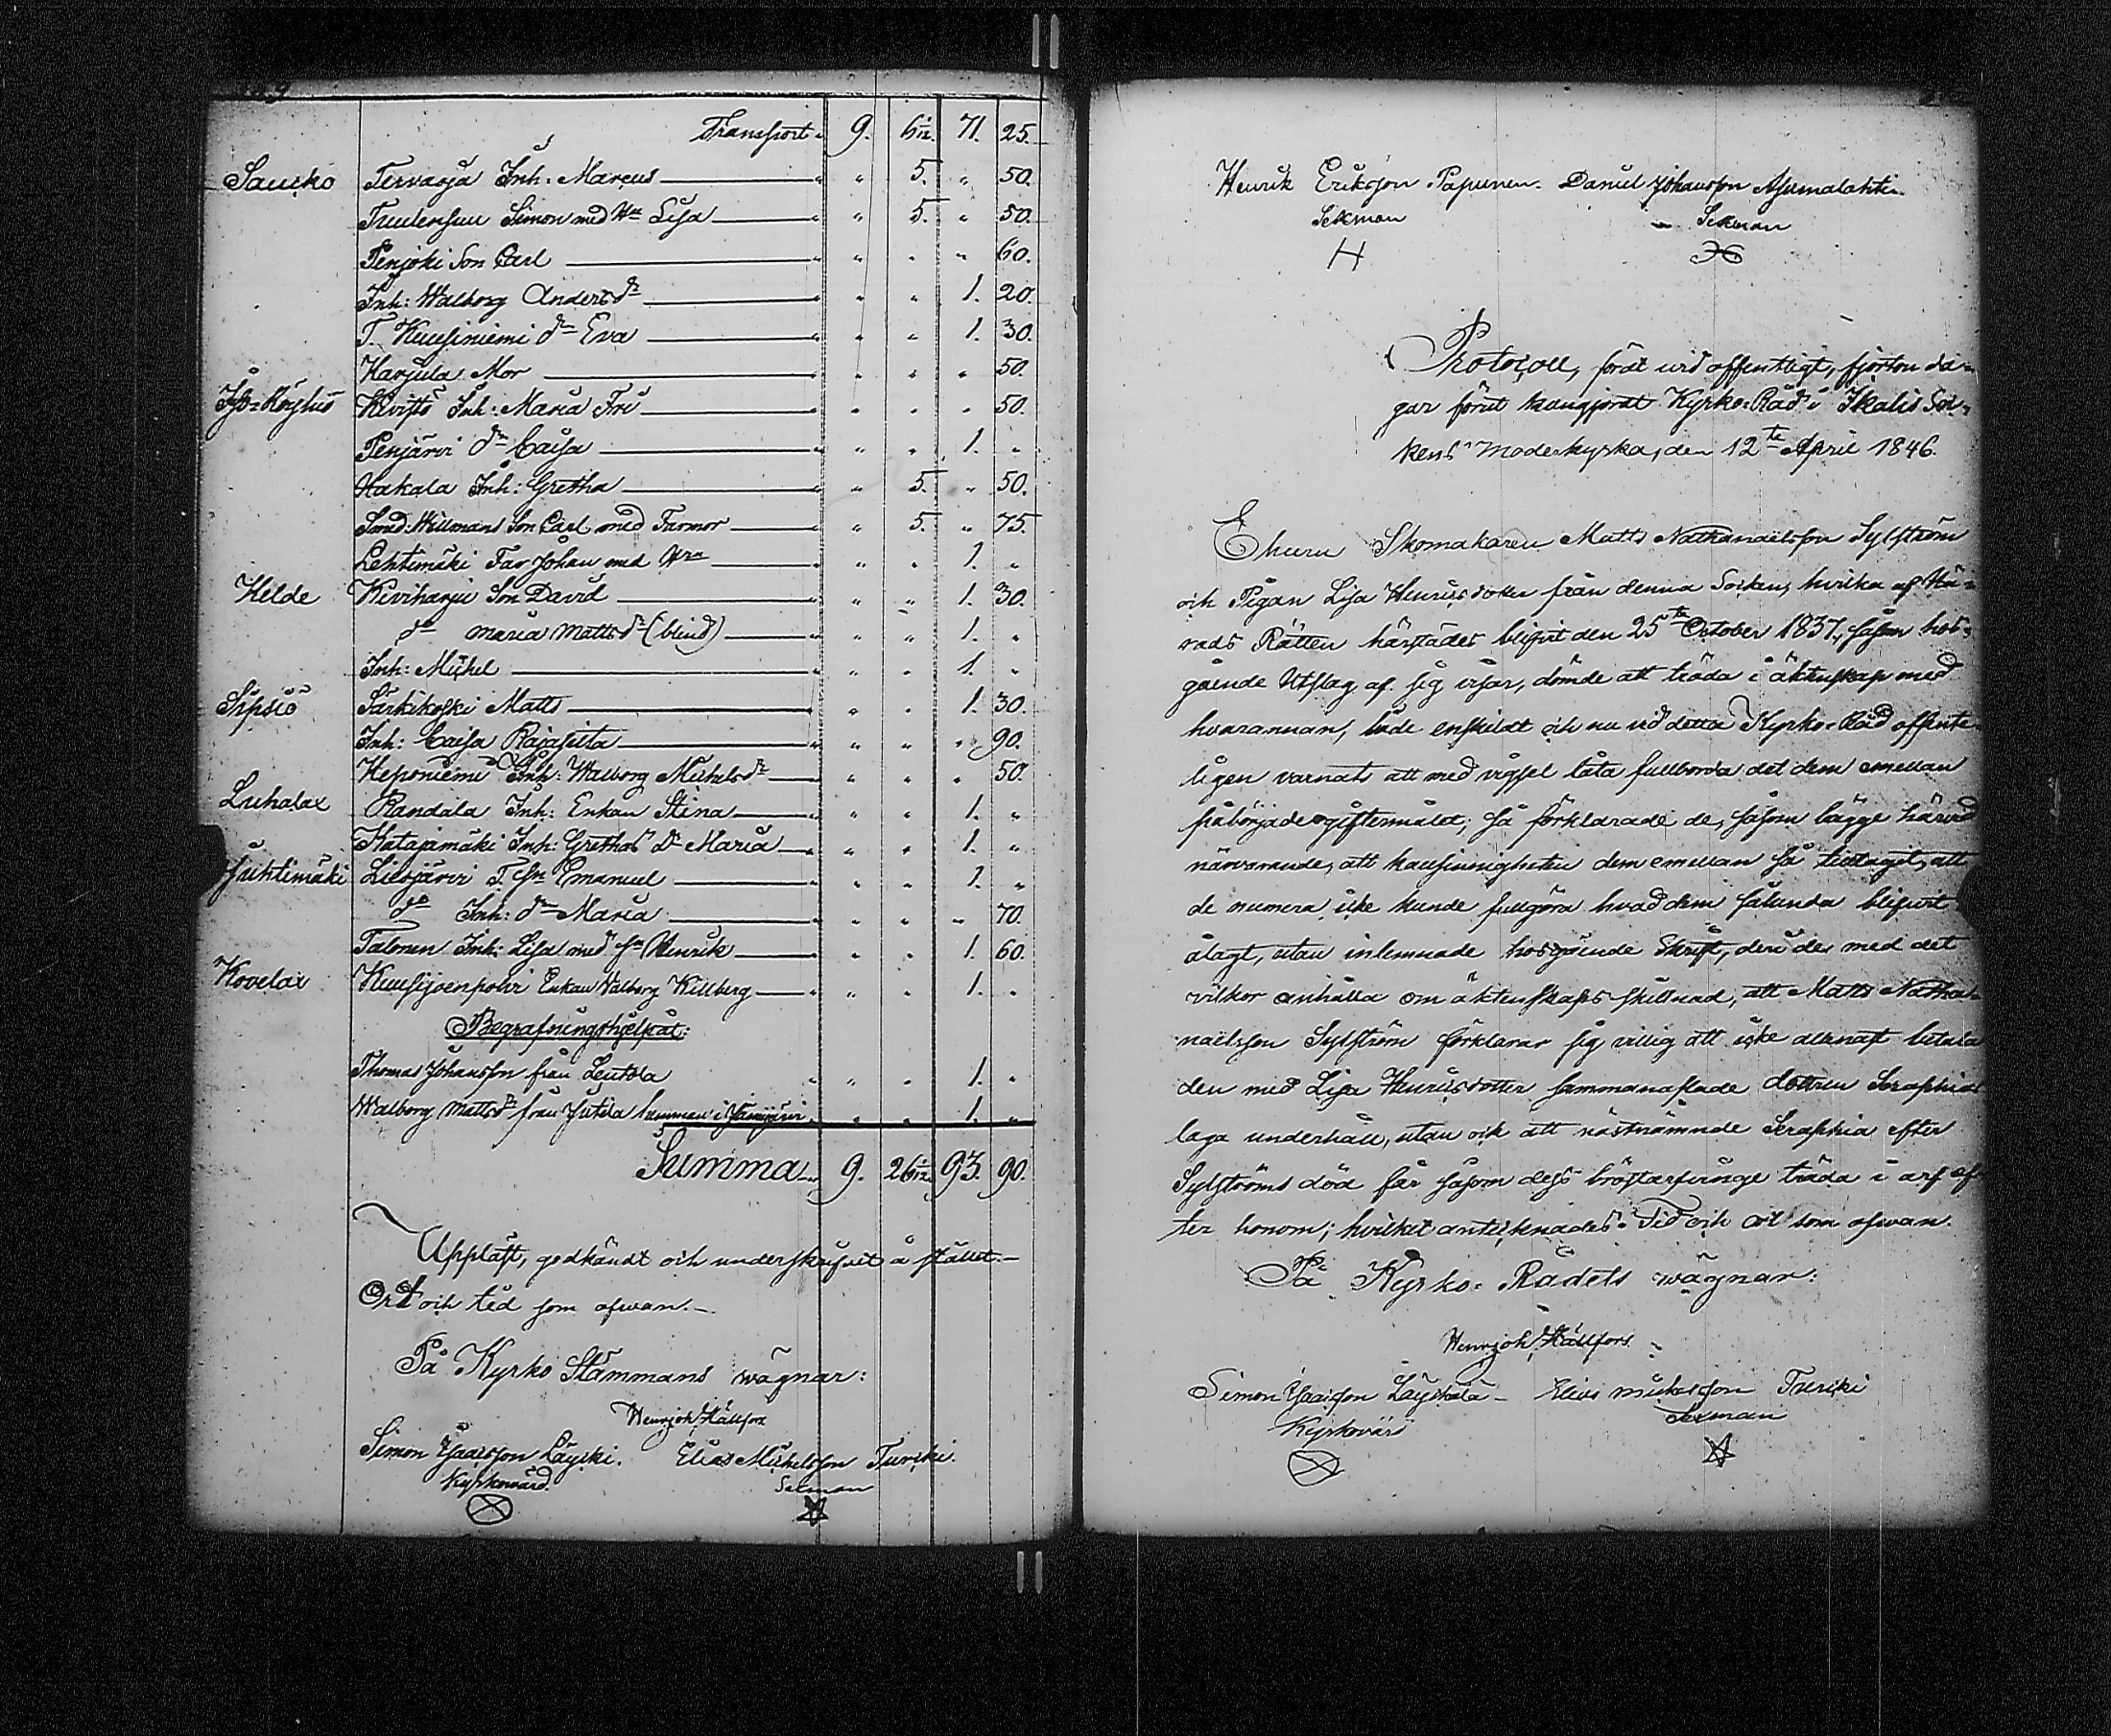 Transport 9. 6 1/12. 71. 25.
Sausko Tervaoja Inh: Marcus " 5. " 50.
Simon med Hu Lisa " 5. " 50.
Penjoki Son Carl " " " 60.
Inh: Walborg Anders dr " " 1. 20.
T. Kuusiniemi dn Eva " " 1. 30.
Harjula Mor " " " 50.
Kivistö Inh: Maria Fri " " " 50.
Penjärvi dn Caisa " " 1. "
Hakala Inh: Gretha " 5. " 50.
Smed: Willmans Son Carl med Farmor " 5. " 75.
Lehtimäki Far Johan med Hu " " 1. "
Helde Kiviharju Son David " " 1. 30.
do Maria Matts dr (blind) " " 1. "
Inh: Michel " " 1. "
Sipsiö Särkikoski Matts " " 1. 30.
Inh: Caisa Rajasilta " " " 90.
Heponiemi Inh: Walborg Michelsdr " " " 50.
Luhalax Randala Inh: Enkan Stina " " 1. "
Hatajamäki Inh: Grethas dr Maria " " 1. "
Juhtimäki Liesjärvi T. Sn Emanuel " " 1. "
do Inh: dn Maria " " " 70.
Talonen Inh: Lisa med Sn Henrik " " 1. 60.
Kovelax Kuusijoenpohi Enkan Valborg Killberg " " 1. "
Begrafningshjelpåt:
Thomas Johansson från Leutola " " 1. "
Walborg Mattsdr från Jutila i Jämijärvi " " 1. "
Summa 9. 26 1/12. 93. 90.
Uppläst, godkändt och underskrifvit å stället.—
Ort och tid som ofwan.—
På Kyrko Stämmans wägnar:
Henr Joh Hällfors
Simon Isaacsson Läyski. Elias Michelsson Turski.
Kyrkovärd. Sexman
Henrik Eriksson Papunen. Daniel Johansson Asumalahti.
Sexman Sexman
Protocoll, fördt vid offentligt, fjorton da-
gar förut kungjordt Kyrko-Råd i Ikalis Soc-
kens Moderkyrka, den 12te April 1846.
Ehuru Skomakaren Matts Nathanaëlsson Sylström
och Pigan Lisa Henricsdotter från denna Socken, hvilka af Hä-
rads Rätten härstädes blifvit den 25te October 1837, såsom hos-
gående Utslag af sig visar, dömde att träda i äktenskap med
hvarannan, både enskildt och nu vid detta Kyrko-Råd offente-
ligen varnats att med vigsel låta fullborda det dem emellan
påbörjade giftermålet; så förklarade de, såsom bägge härvid
närvarande, att kallsinnigheten dem emellan så tilltagit, att
de numera icke kunde fullgöra hvad dem sålunda blifvit
ålagt, utan inlemnade hosgående Skrift, deri de med det
vilkor anhålla om äktenskaps-skillnad, att Matts Natha-
naëlsson Sylström förklarar sig villig att icke allenast betala
den med Lisa Henricsdotter sammanaflade dottren Seraphia
laga underhåll, utan ock att nästnämnde Seraphia efter
Sylströms död får såsom dess bröstarfvinge träda i arf ef-
ter honom; hvilket antecknades. Tid och ort som ofwan.
På Kyrko-Rådets wägnar:
Henr Joh Hällfors
Simon Isacsson Läyskälä Elias Mickelsson Turski
Kyrkovärd Sexman